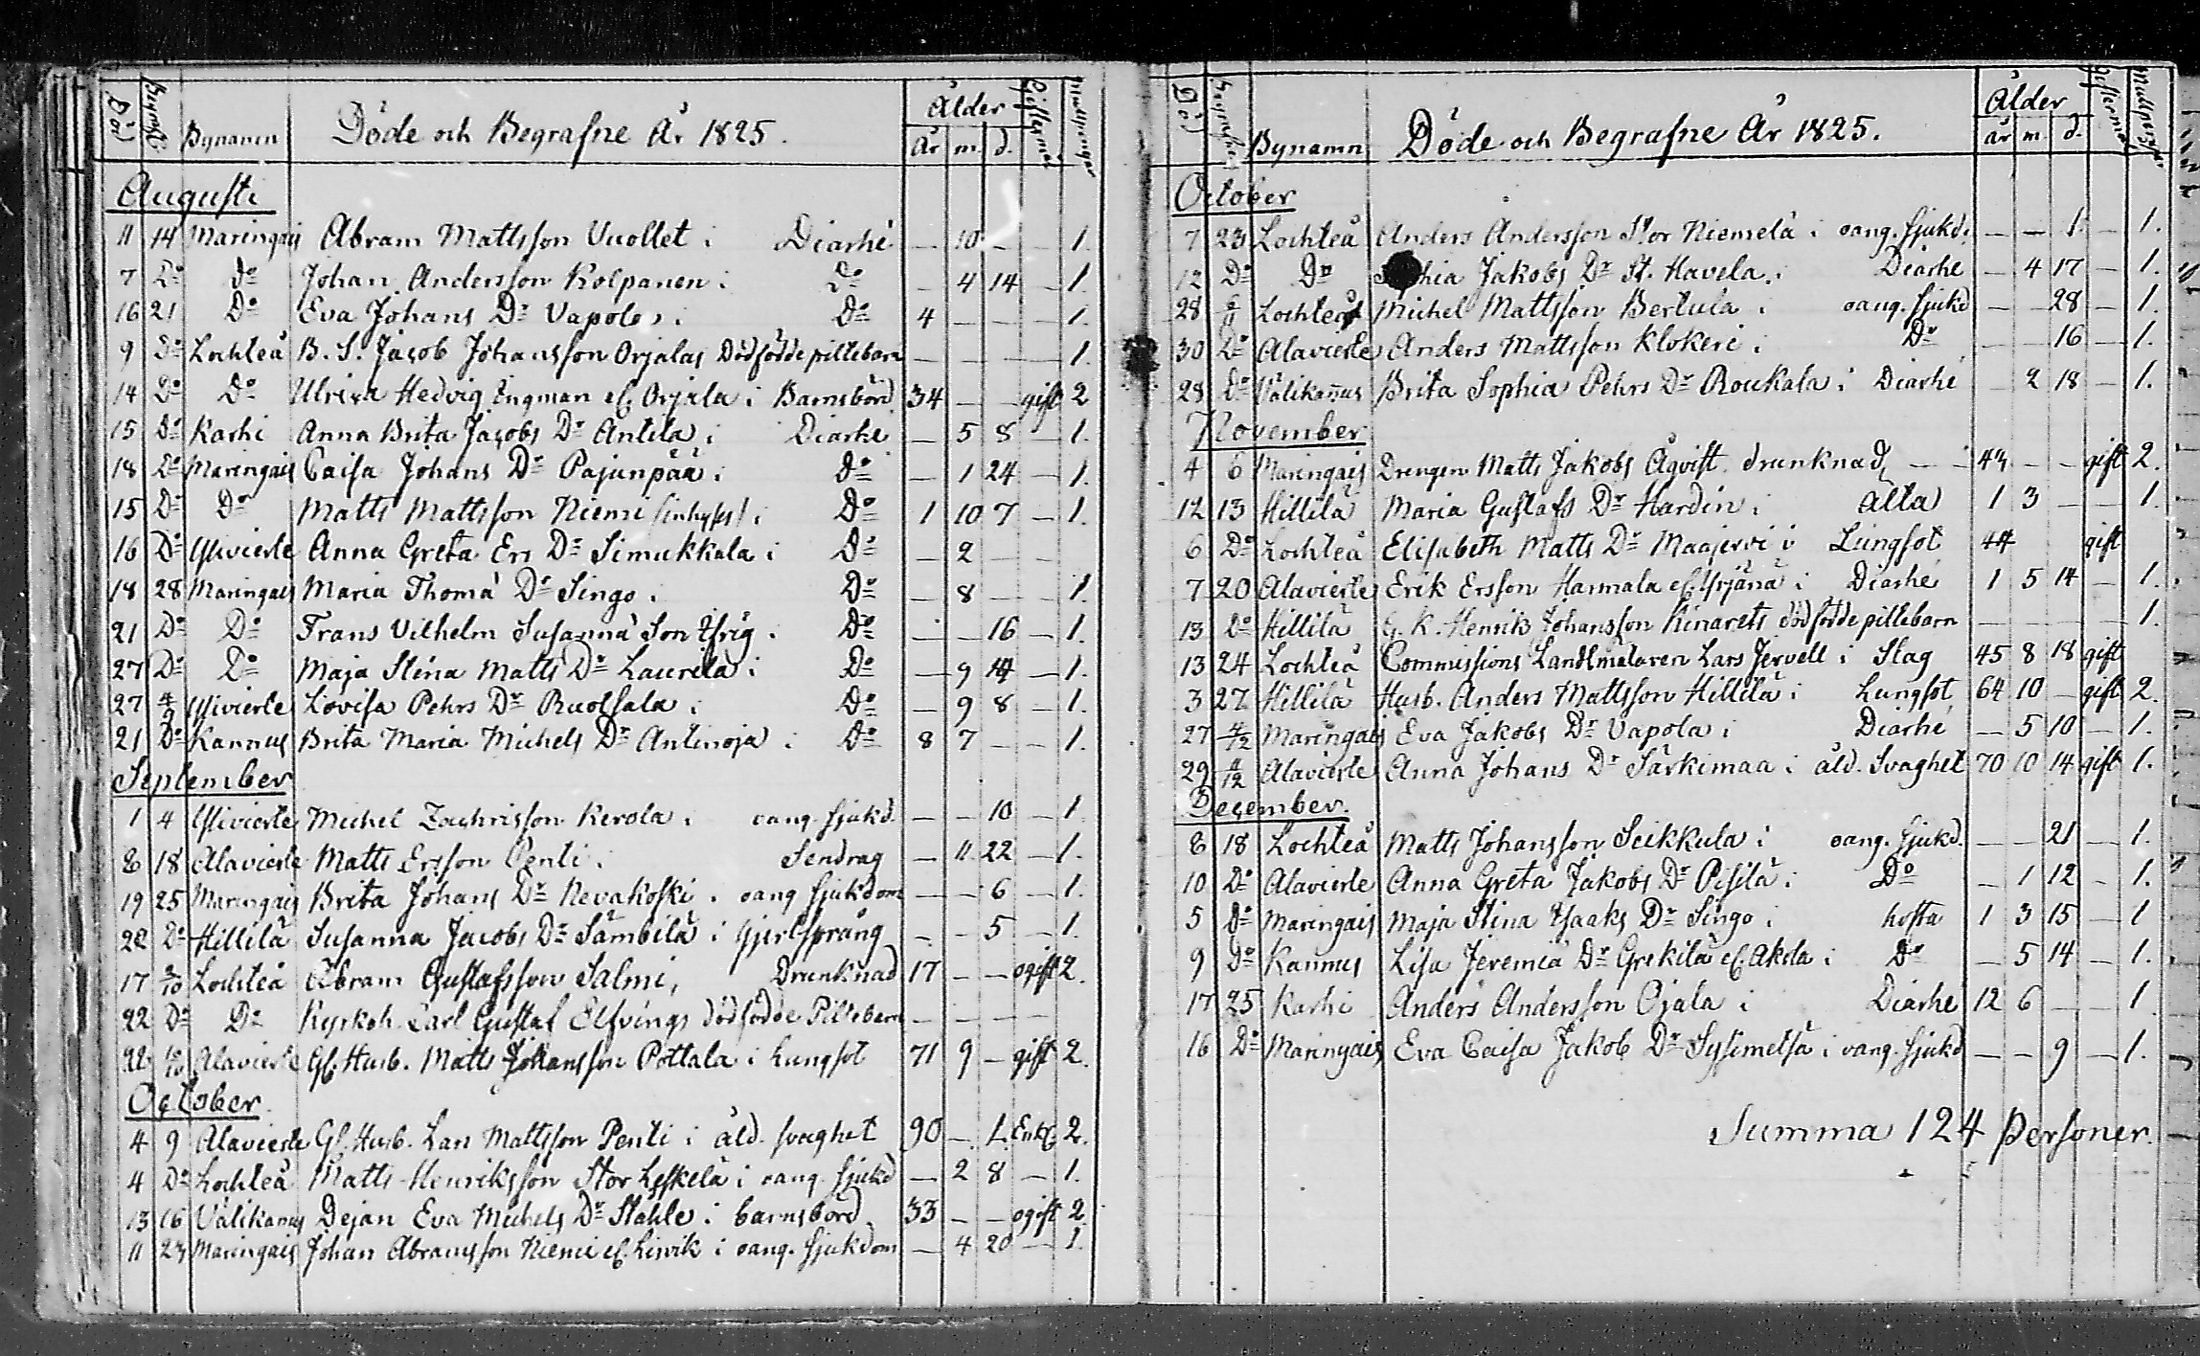 Död Begrafn: Bynamn Döde och Begrafne År 1825. Ålder År m. d. Giftermål
Augusti
11 14 Maringais Abram Mattsson Vuollet i Diarhé — 10 — — 1.
7 Do do Johan Andersson Kolpanen i Do — 4 14 — 1.
16 21 Do Eva Johans Dr Vapola i Do 4 — — — 1.
9 Do Lochteå B. S. Jacob Johansson Orjalas Dödfödde pillebarn — — — — 1.
14 Do Do Ulrica Hedvig Engman ef. Orjala i Barnsbörd 34 — — gift 2
15 Do Karhi Anna Brita Jacobs Dr Antila i Diarhe — 5 8 — 1.
18 Do Maringais Caisa Johans Dr Pajunpää i Do — 1 24 — 1.
15 Do Do Matts Mattsson Niemi (inhyses) i Do 1 10 7 — 1.
16 Do Ylivierle Anna Greta Ers Dr Simukkala i Do — 2 — —
18 28 Maringais Maria Thomä Dr Singo i Do — 8 — — 1.
21 Do Do Frans Vilhelm Susannä Son Yrig i Do — — 16 — 1.
27 Do Do Maja Stina Matts Dr Laurila i Do — 9 14 — 1.
27 4/9 Ylivierle Lovisa Pehrs Dr Ruotsala i Do — 9 8 — 1.
21 Do Kannus Brita Maria Michels Dr Antinoja i Do 8 7 — — 1.
September
1 4 Ylivierle Michel Zachrisson Kerola i oang. sjukd. — — 10 — 1.
8 18 Alavierle Matts Ersson Penti i Sendrag — 11 22 — 1.
19 25 Maringais Brita Johans Dr Nevakoski i oang sjukdom — — 6 — 1.
22 Do Hillilä Susanna Jacobs Dr Sämbilä i Hjertsprång — — 5 — 1.
17 2/10 Lochteå Abram Gustafsson Salmi, Drunknad 17 — — ogift 2.
22 Do Do Kyrkoh. Carl Gustaf Elfvings dödfödde Pillebarn — — — —
22 Alavierle Gl. Husb. Matts Johansson Pottala i Lungsot 71 9 — gift 2.
October
4 9 Alavierle Gl. Husb. Lars Mattsson Penti i åld. svaghet 90 — 1. Enkl. 2.
4 Do Lochteå Matts Henriksson Stor Lyskelä i oang. sjukd — 2 8 — 1.
13 16 Välikanus Dejan Eva Michels Dr Stahle i barnsbörd 33 — — ogift 2
11 23 Maringais Johan Abramsson Niemi ef. Linvik i oang. sjukdom — 4 20 — 1.
Död Bynamn Döde och Begrafne År 1825. Ålder år m. d.
October
7 23 Lochteå Anders Andersson Stor Niemelä i oang. sjukd. — — 1. — 1.
12 Do Do Sophia Jakobs Dr St. Havela i Diarhe — 4 17 — 1.
28 Lochteå Michel Mattsson Bertula i oang. sjukd — — 28 — 1.
30 Do Alavierle Anders Mattsson Klokeri i Do — — 16 — 1.
28 Do Välikannus Brita Sophia Pehrs Dr Roukala i Diarhé — 2 18 — 1.
November
4 6 Maringais Drengen Matts Jakobs Åqvist drunknad — — 43 — — gift 2.
12 13 Hillilä Maria Gustafs Dr Hardin i alta 1 3 — — 1.
6 Do Lochteå Elisabeth Matts Dr Maajervi i Lungsot 44 gift
7 20 Alavierle Erik Ersson Hannala ef. Yrjänä i Diarhé 1 5 14 — 1.
13 Do Hillilä G. K. Henrik Johansson Kinarets dödfödde pillebarn — — — — 1.
13 24 Lochteå Commissions Landtmätaren Lars Jervell i Slag 45 8 18 gift
3 27 Hillilä Husb. Anders Mattsson Hillilä i Lungsot 64 10 — gift 2.
27 4/12 Maringais Eva Jakobs Dr Vapola i Diarhé — 5 10 — 1.
29 4/12 Alavierle Anna Johans Dr Särkimaa i åld. Svaghet 70 10 14 gift 1.
December
8 18 Lochteå Matts Johansson Seikkula i oang. sjukd. — — 21 — 1.
10 Do Alavierle Anna Greta Jakobs Dr Pisilä i Do — 1 12 — 1.
5 Do Maringais Maja Stina Isaaks Dr Singo i hosta 1 3 15 — 1
9 Do Kannus Lisa Jeremiä Dr Grekilä ef. Akola i Do — 5 14 — 1.
17 25 Karhi Anders Andersson Ojala i Diarhé 12 6 — — 1
16 Do Maringais Eva Caisa Jakob Dr Sysimetsä i oang. sjukd — — 9 — 1.
Summa 124 Personer.